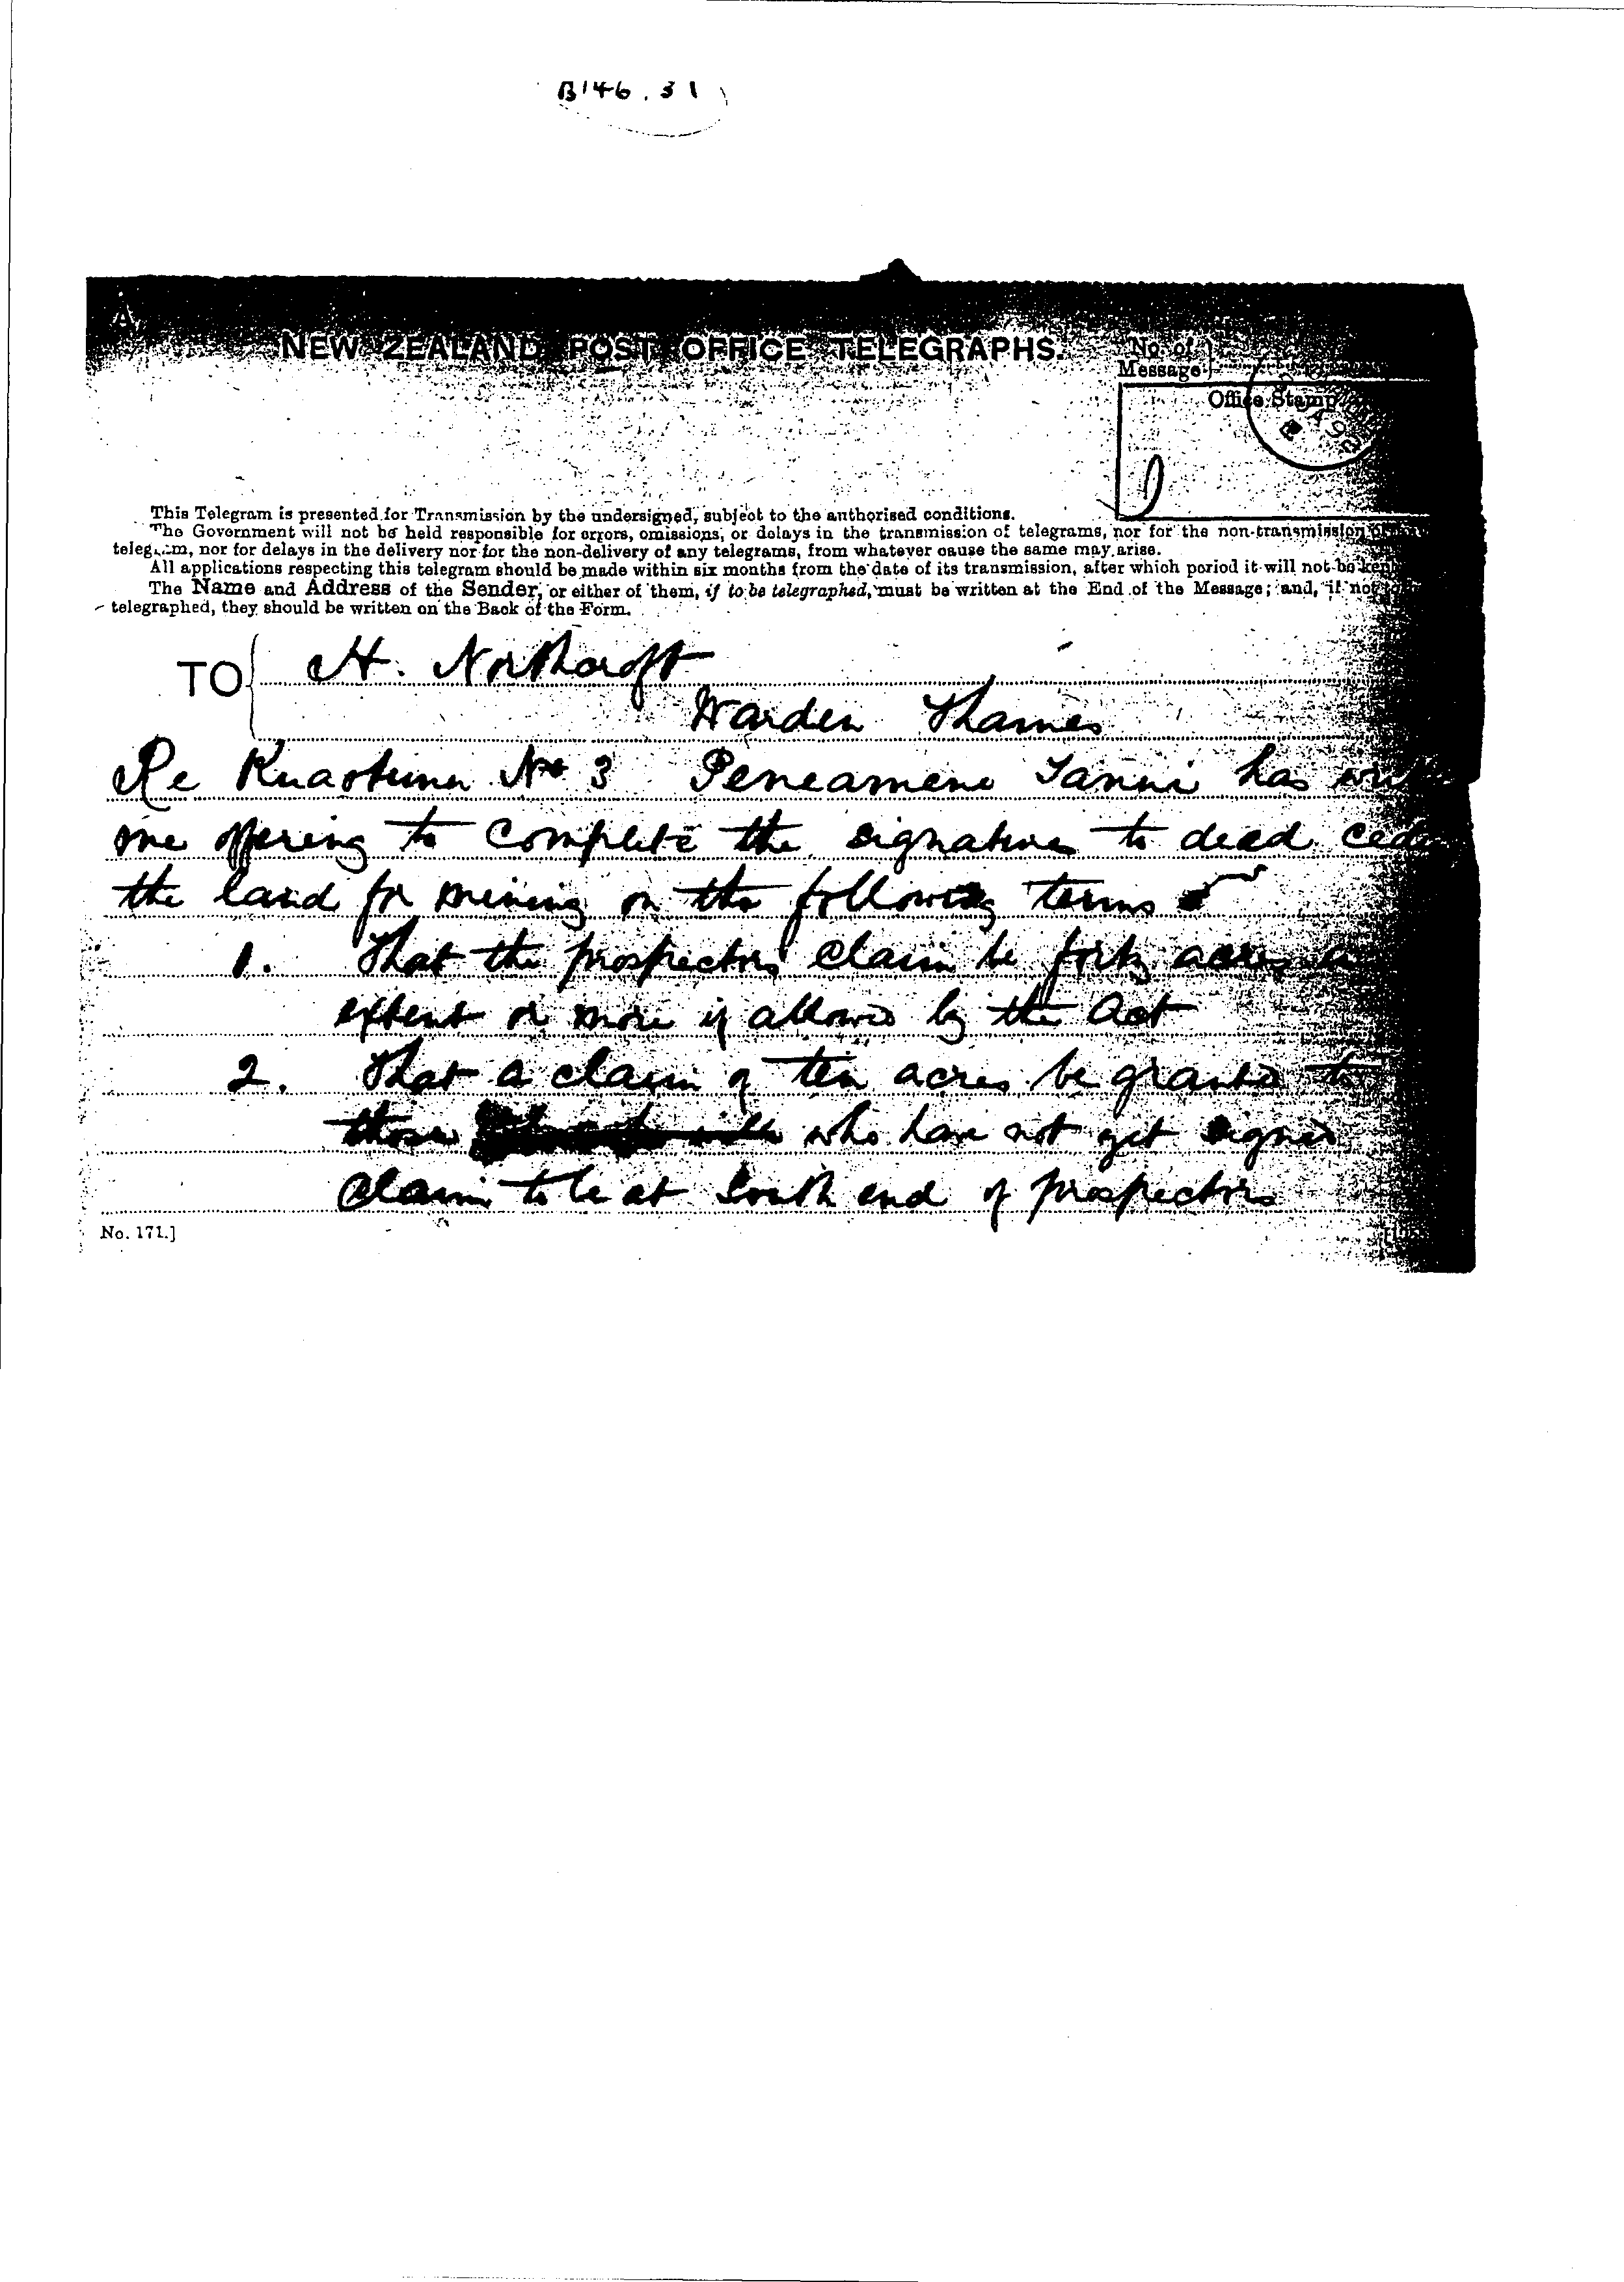 B146.31
A.
NEW ZEALAND POST OFFICE TELEGRAPHS.
No. of
Message
Office Stamp
This Telegram is presented for Transmission by the undersigned, subject to the authorised conditions.
The Government will not be held responsible for errors, omissions, or delays in the transmission of telegrams, nor for the non-transmission of
telegram, nor for delays in the delivery nor for the non-delivery of any telegrams, from whatever cause the same may arise.
All applications respecting this telegram should be made within six months from the date of its transmission, after which period it will not be kept
The Name and Address of the Sender, or either of them, if to be telegraphed, must be written at the End of the Message; and, if not to
telegraphed, they should be written on the Back of the Form.
TO H. Northcroft
Warden Thames
Re Kuaotunu No 3 Peneamene Tanui has
me offering to complete the signatures to deed
the land for mining on the following terms
1. That the prospectors claim be forty acres
extent or more if allowed by the Act
2. That a claim of ten acres be granted to
those who have not yet signed
claim to be at South end of prospectors
No. 171.]